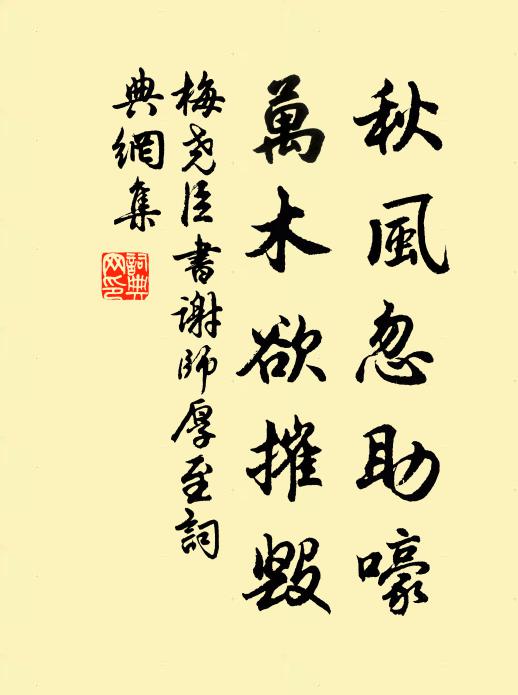 秋風忽助嚎
萬木欲摧毀
梅堯臣書謝師厚至詞
典網集
詞典網印